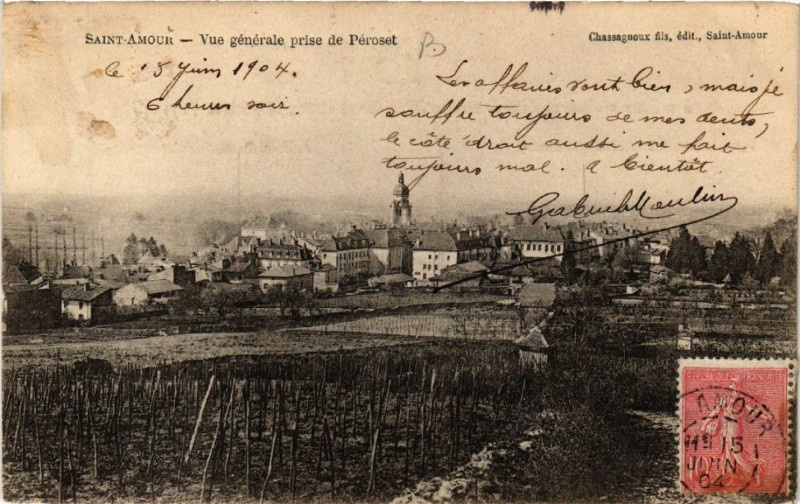 SAINT-AMOUR — Vue générale prise de Péroset
Chassagnoux fils, édit., Saint-Amour
le 15 Juin 1904.
6 heures soir.
Les affaires vont bien, mais je
souffre toujours de mes dents,
le côté droit aussi me fait
toujours mal. a bientôt.
Gabriel Moulin
B
RÉPUBLIQUE FRANÇAISE
AMOUR
15
JUIN
04